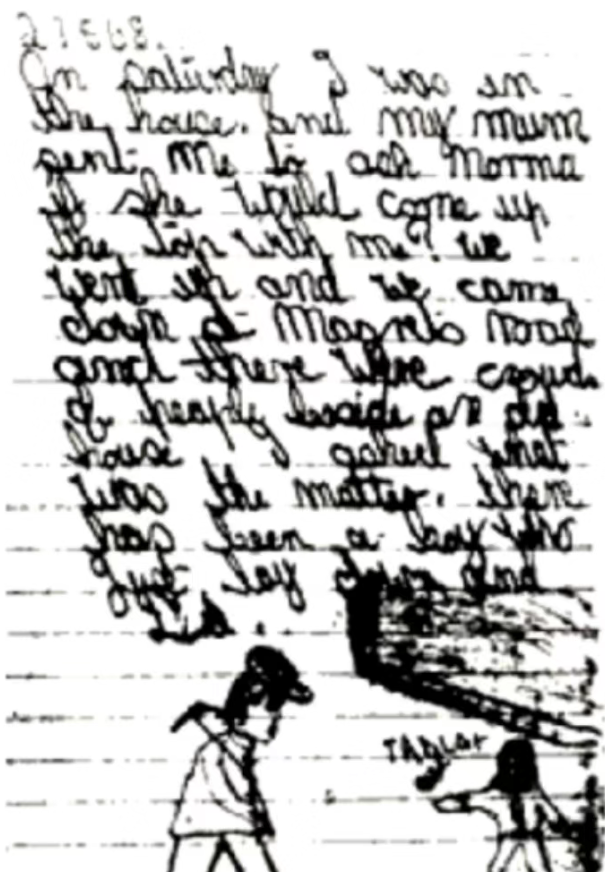 27568.
On saturday I was in
the house. and my mum
sent me to ask Norma
if she would come up
the top with me? we
went up and we came
down at Magrets road
and there were crowds
of people beside an old
house I asked what
was the matter. there
has been a boy who
just lay down and
died.
TABLet